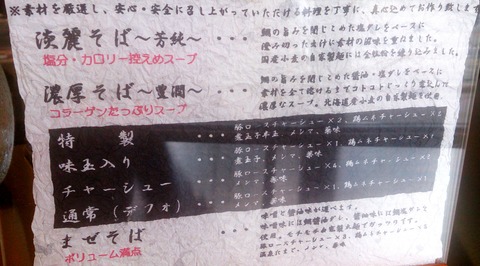 ※素材を厳選し、安心・安全に召し上がっていただける料理を丁寧に、真心込めてお作り致します
淡麗そば～芳純～ ・・・
塩分・カロリー控えめスープ
鯛の旨みを閉じこめた塩ダレをベースに
澄み切った出汁に素材の滋味を重ねました。
国産小麦の自家製麺には全粒粉を練り込みました。
濃厚そば～豊潤～ ・・・
コラーゲンたっぷりスープ
鯛の旨みを閉じこめた醤油・塩ダレをベースに
素材を全て蕩けるまでコトコトじっくり煮込んだ
濃厚なスープ。北海道産小麦の自家製麺を使用
特製 ・・・ 豚ロースチャーシュー×2、鶏ムネチャーシュー×2
煮玉子半玉、メンマ、薬味
味玉入り ・・・ 豚ロースチャーシュー×1、鶏ムネチャーシュー×1
煮玉子、メンマ、薬味
チャーシュー ・・・ 豚ロースチャーシュー×4、鶏ムネチャーシュー
メンマ、薬味
通常(デフォ) ・・・ 豚ロースチャーシュー×1、鶏ムネチャーシュー×1
メンマ、薬味
まぜそば ・・・
ボリューム満点
味噌と醤油味が選べます。
豚ロースチャーシュー×3、鶏ムネチャーシュー
温泉たまご、メンマ、薬味